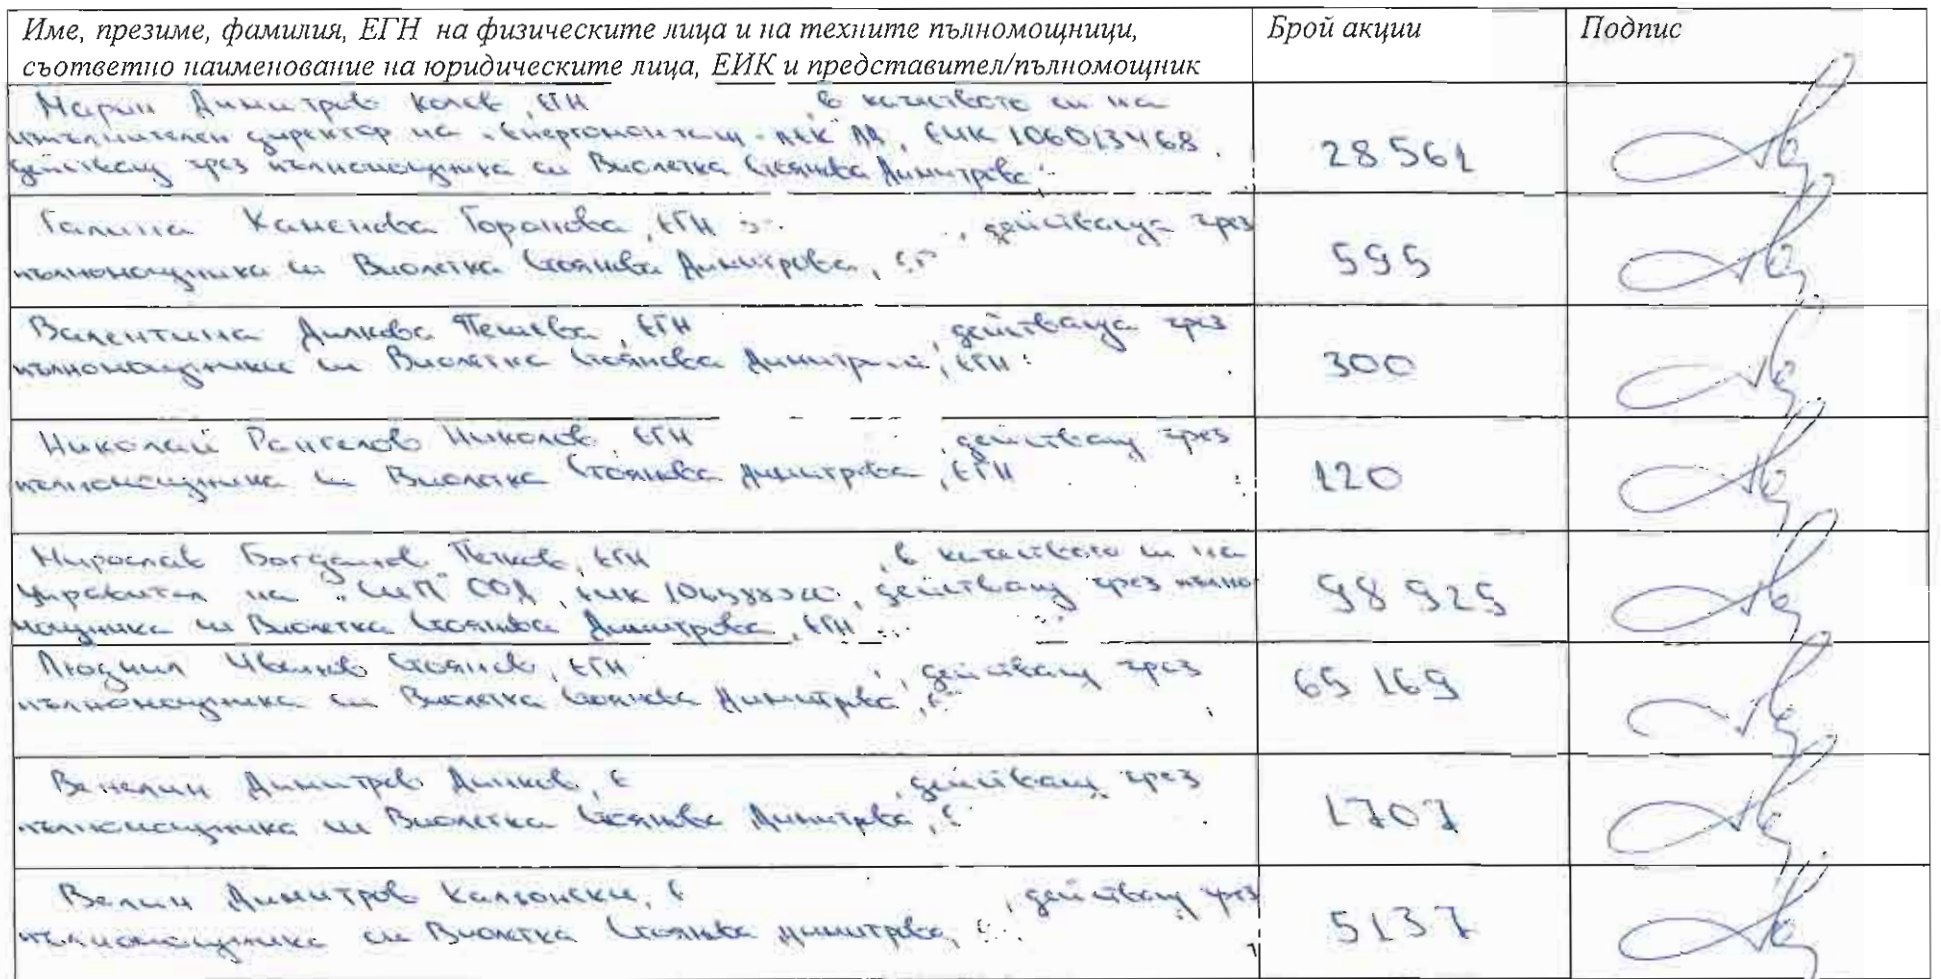 Име, презиме, фамилия, ЕГН на физическите лица и на техните пълномощници, съответно наименование на юридическите лица, ЕИК и представител/пълномощник
Брой акции
Подпис
Марин Димитров Колев, ЕГН в качеството си на
изпълнителен директор на "Енергомонтаж-АЕК" АД, ЕИК 106013468
действащ чрез пълномощника си Виолетка Стоянова Димитрова
28 561
Галина Каменова Горанова, ЕГН , действаща чрез
пълномощника си Виолетка Стоянова Димитрова,
595
Валентина Дилкова Пешева, ЕГН , действаща чрез
пълномощника си Виолетка Стоянова Димитрова, ЕГН
300
Николай Рангелов Николов, ЕГН , действащ чрез
пълномощника си Виолетка Стоянова Димитрова, ЕГН
120
Мирослав Богданов Петков, ЕГН , в качеството си на
управител на "СиП" ООД, ЕИК , действащ чрез пълно
мощника си Виолетка Стоянова Димитрова, ЕГН
98 929
Людмил Иванов Стоянов, ЕГН , действащ чрез
пълномощника си Виолетка Стоянова Димитрова,
69 169
Венелин Димитров Динков, Е , действащ чрез
пълномощника си Виолетка Стоянова Димитрова,
1707
Велин Димитров Калъонски, , действащ чрез
пълномощника си Виолетка Стоянова Димитрова,
5137